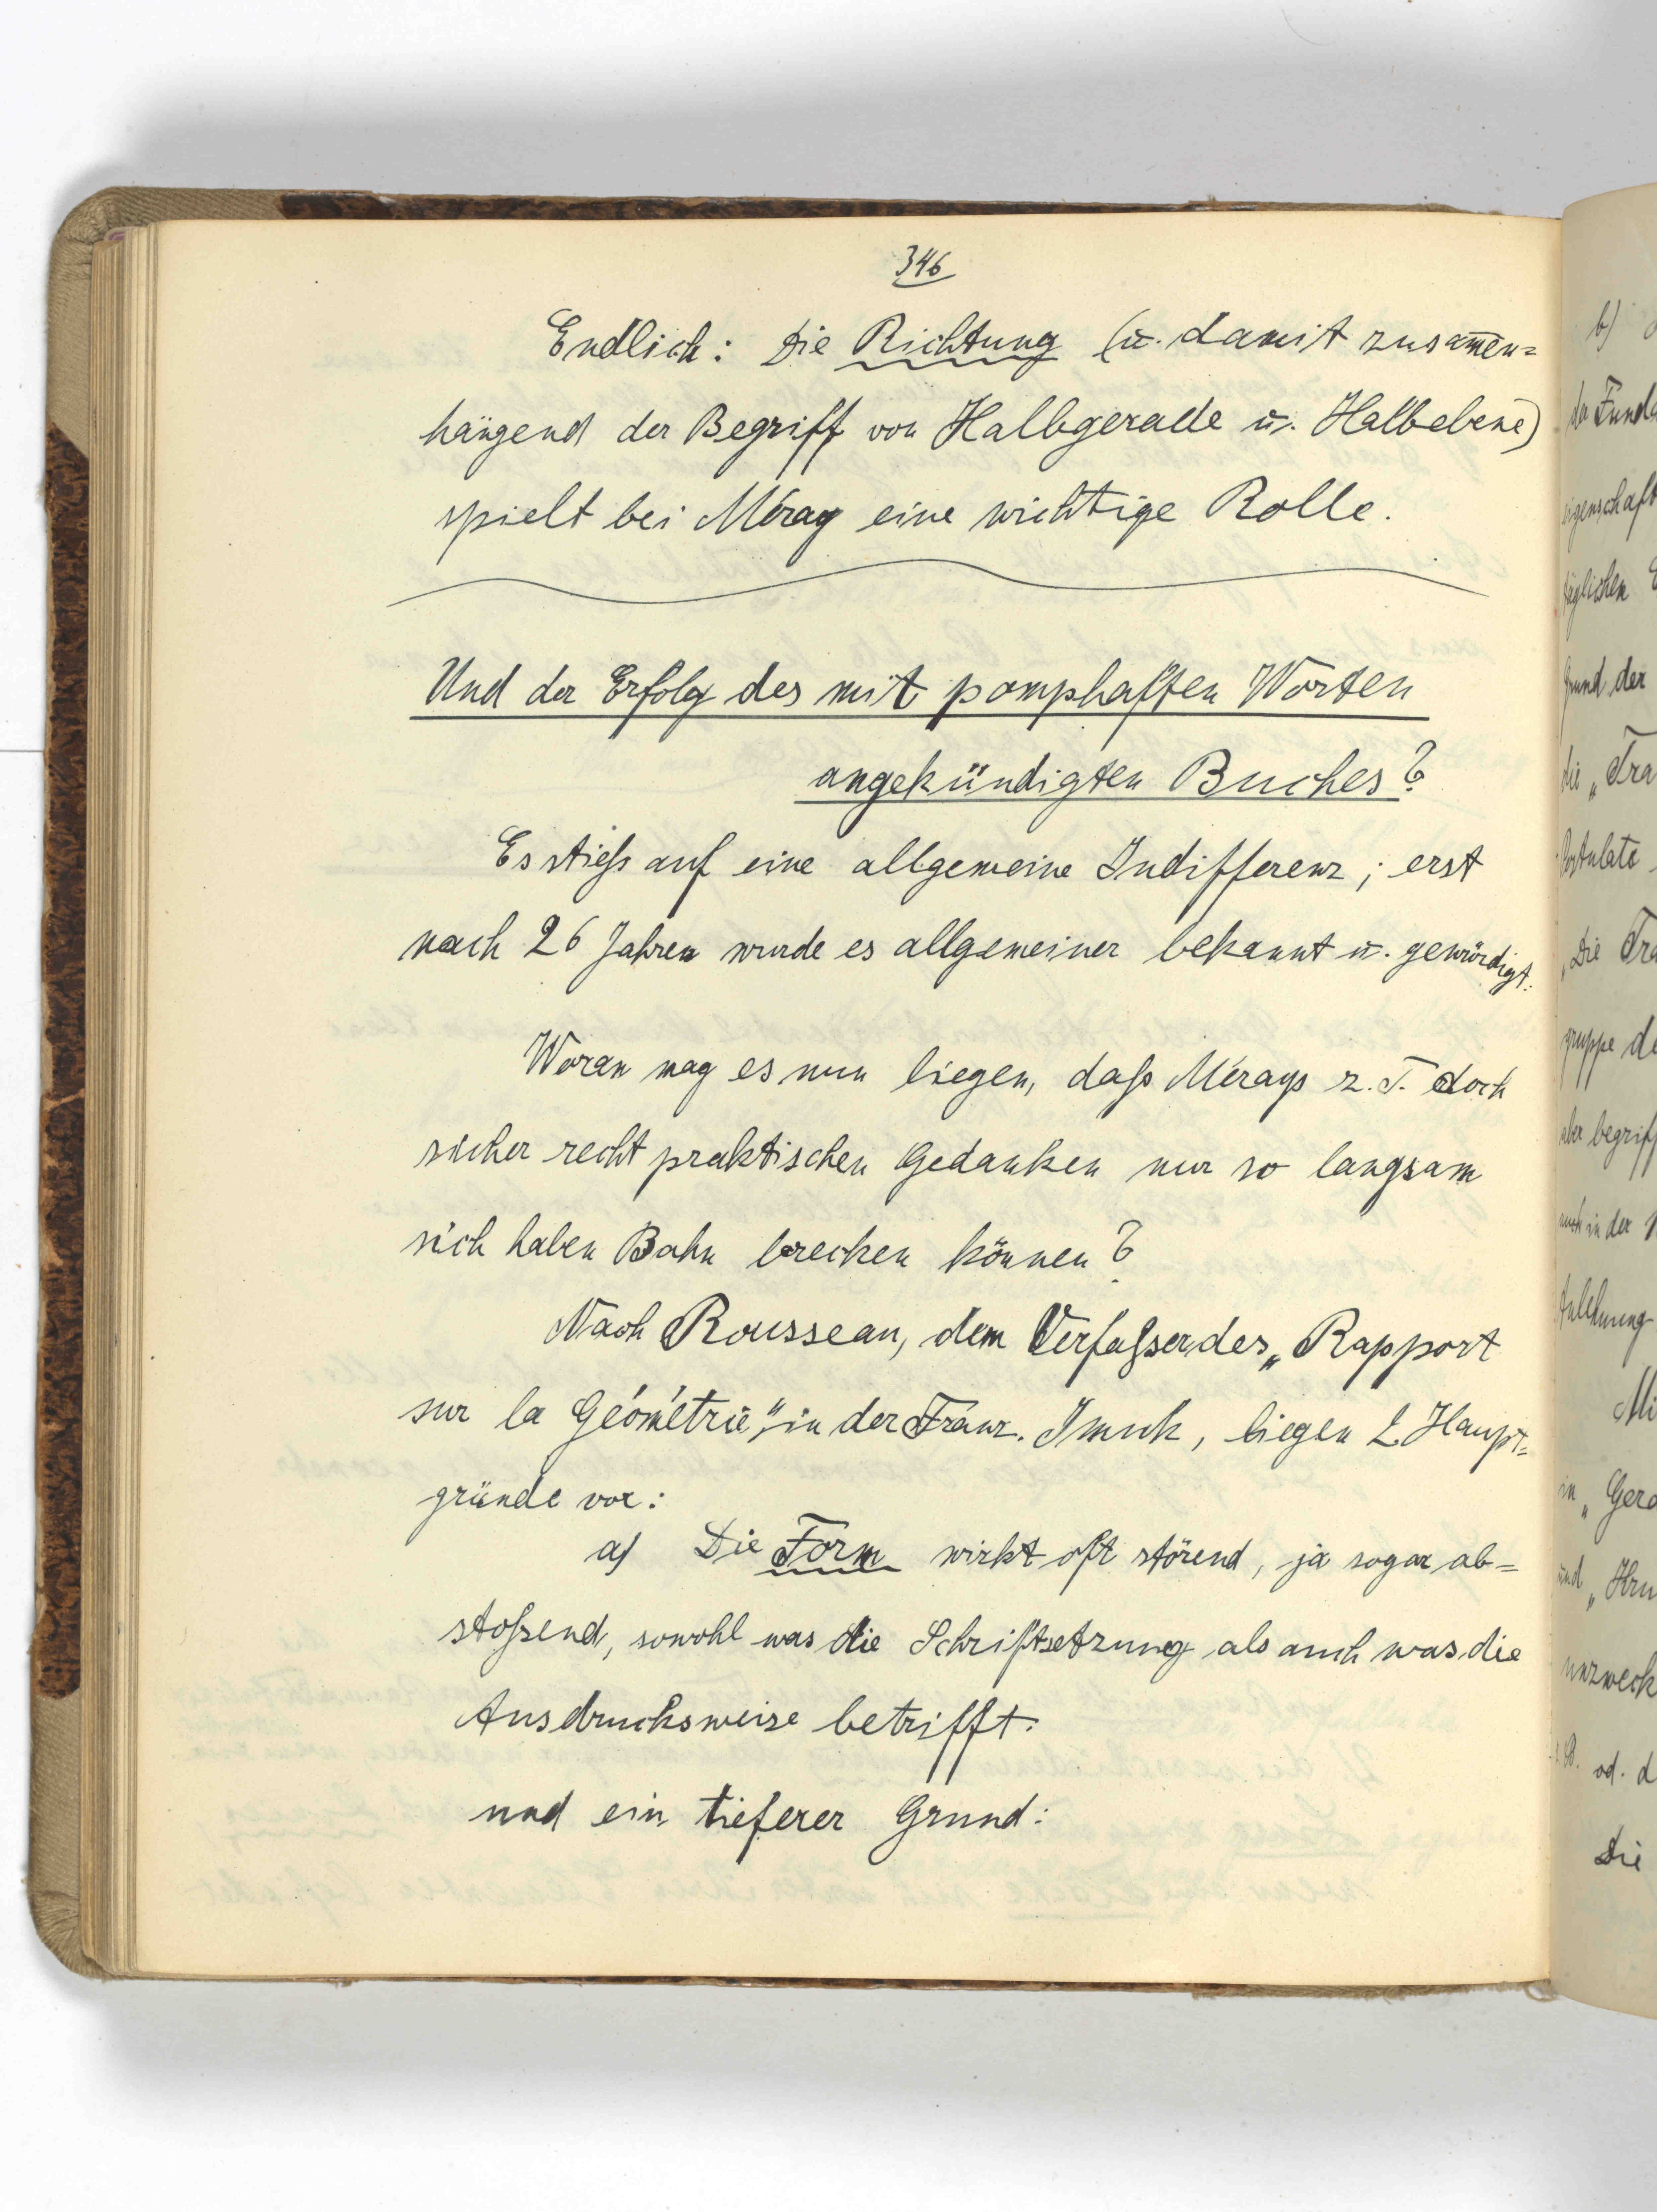 346
Endlich: Die Richtung (u. damit zusam̅en=
hängend der Begriff von Halbgerade u. Halbebene)
spielt bei Méray eine wichtige Rolle.
Und der Erfolg des mit pomphaften Worten
angekündigten Buches?
Es stieß auf eine allgemeine Indifferenz; erst
nach 26 Jahren wurde es allgemeiner bekannt u. gewürdigt.
Woran mag es nun liegen, daß Mérays z. T. doch
sicher recht praktischen Gedanken nur so langsam
sich haben Bahn brechen können?
Nach Rousseau, dem Verfaßer des „Rapport
sur la Géométrie", in der Franz. Imuk, liegen 2 Haupt=
gründe vor:
a) Die Form wirkt oft störend, ja sogar ab=
stoßend, sowohl was die Schriftsetzung als auch was die
Ausdrucksweise betrifft.
und ein tieferer Grund:
b)
der Funda
eigenschaft
täglichen
Grund der
die „Tra
Postulate
„Die Tra
gruppe de
aber begriff
auch in der
Anlehnung
Mi
in „Gera
und
unzweck
od. d
Die